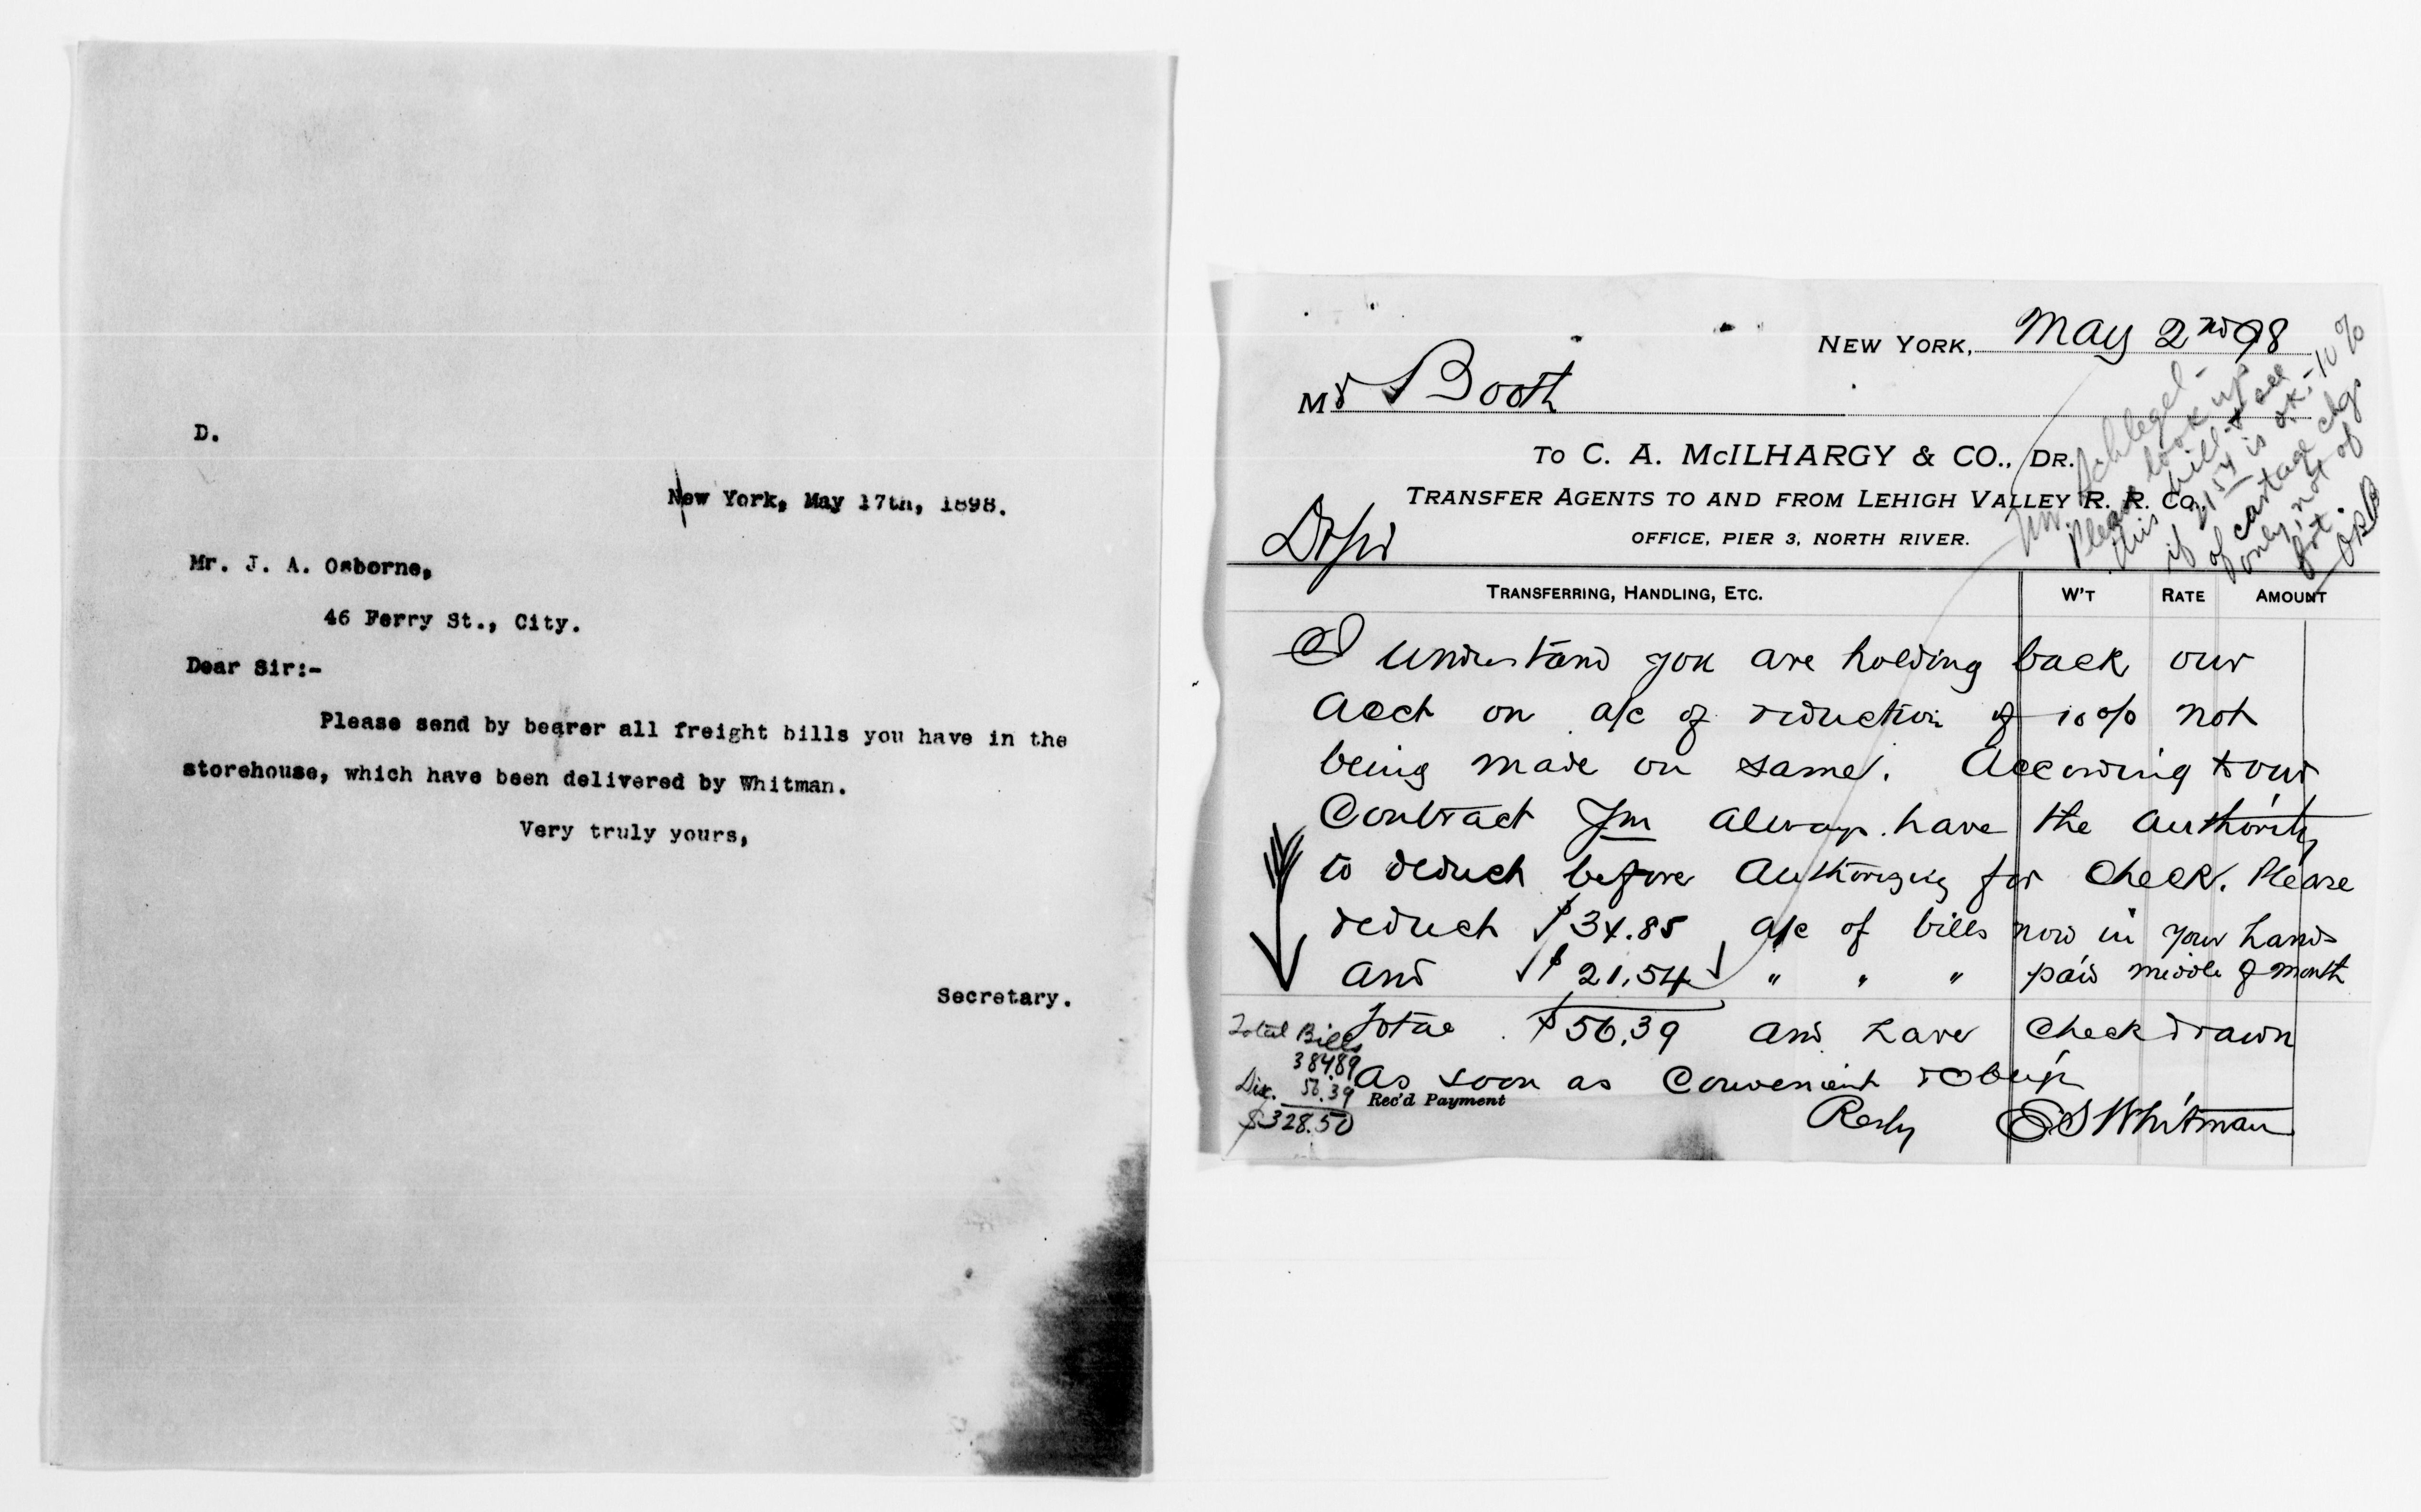 D.
New York, May 17th, 1898.
Mr. J. A. Osborne,
46 Ferry St., City.
Dear Sir:-
Please send by bearer all freight bills you have in the
storehouse, which have been delivered by Whitman.
Very truly yours,
Secretary.
NEW YORK, May 2nd 98
Mr Booth
TO C. A. MCILHARGY & CO., DR.
TRANSFER AGENTS TO AND FROM LEHIGH VALLEY R. R. CO.
OFFICE, PIER 3, NORTH RIVER.
Dr Sir
Schlegel -
Please look up
this bill & see
if 21 54 is ok. - 10%
of cartage chgs
only, not of
frt.
TRANSFERRING, HANDLING, ETC. W'T RATE AMOUNT
I understand you are holding back our
Acct on a/c of reduction of 10% not
being made on same. According to our
Contract You always have the authority
to deduct before Authorizing for Check. Please
deduct $34.85 a/c of bills now in your hands
and $21.54 " " " paid middle of month
Total $56.39 and have Check drawn
as soon as Convenient & oblige
Rec'd Payment
Resly E S Whitman
Total Bills
384.89
Dis. 56.39
$328.50